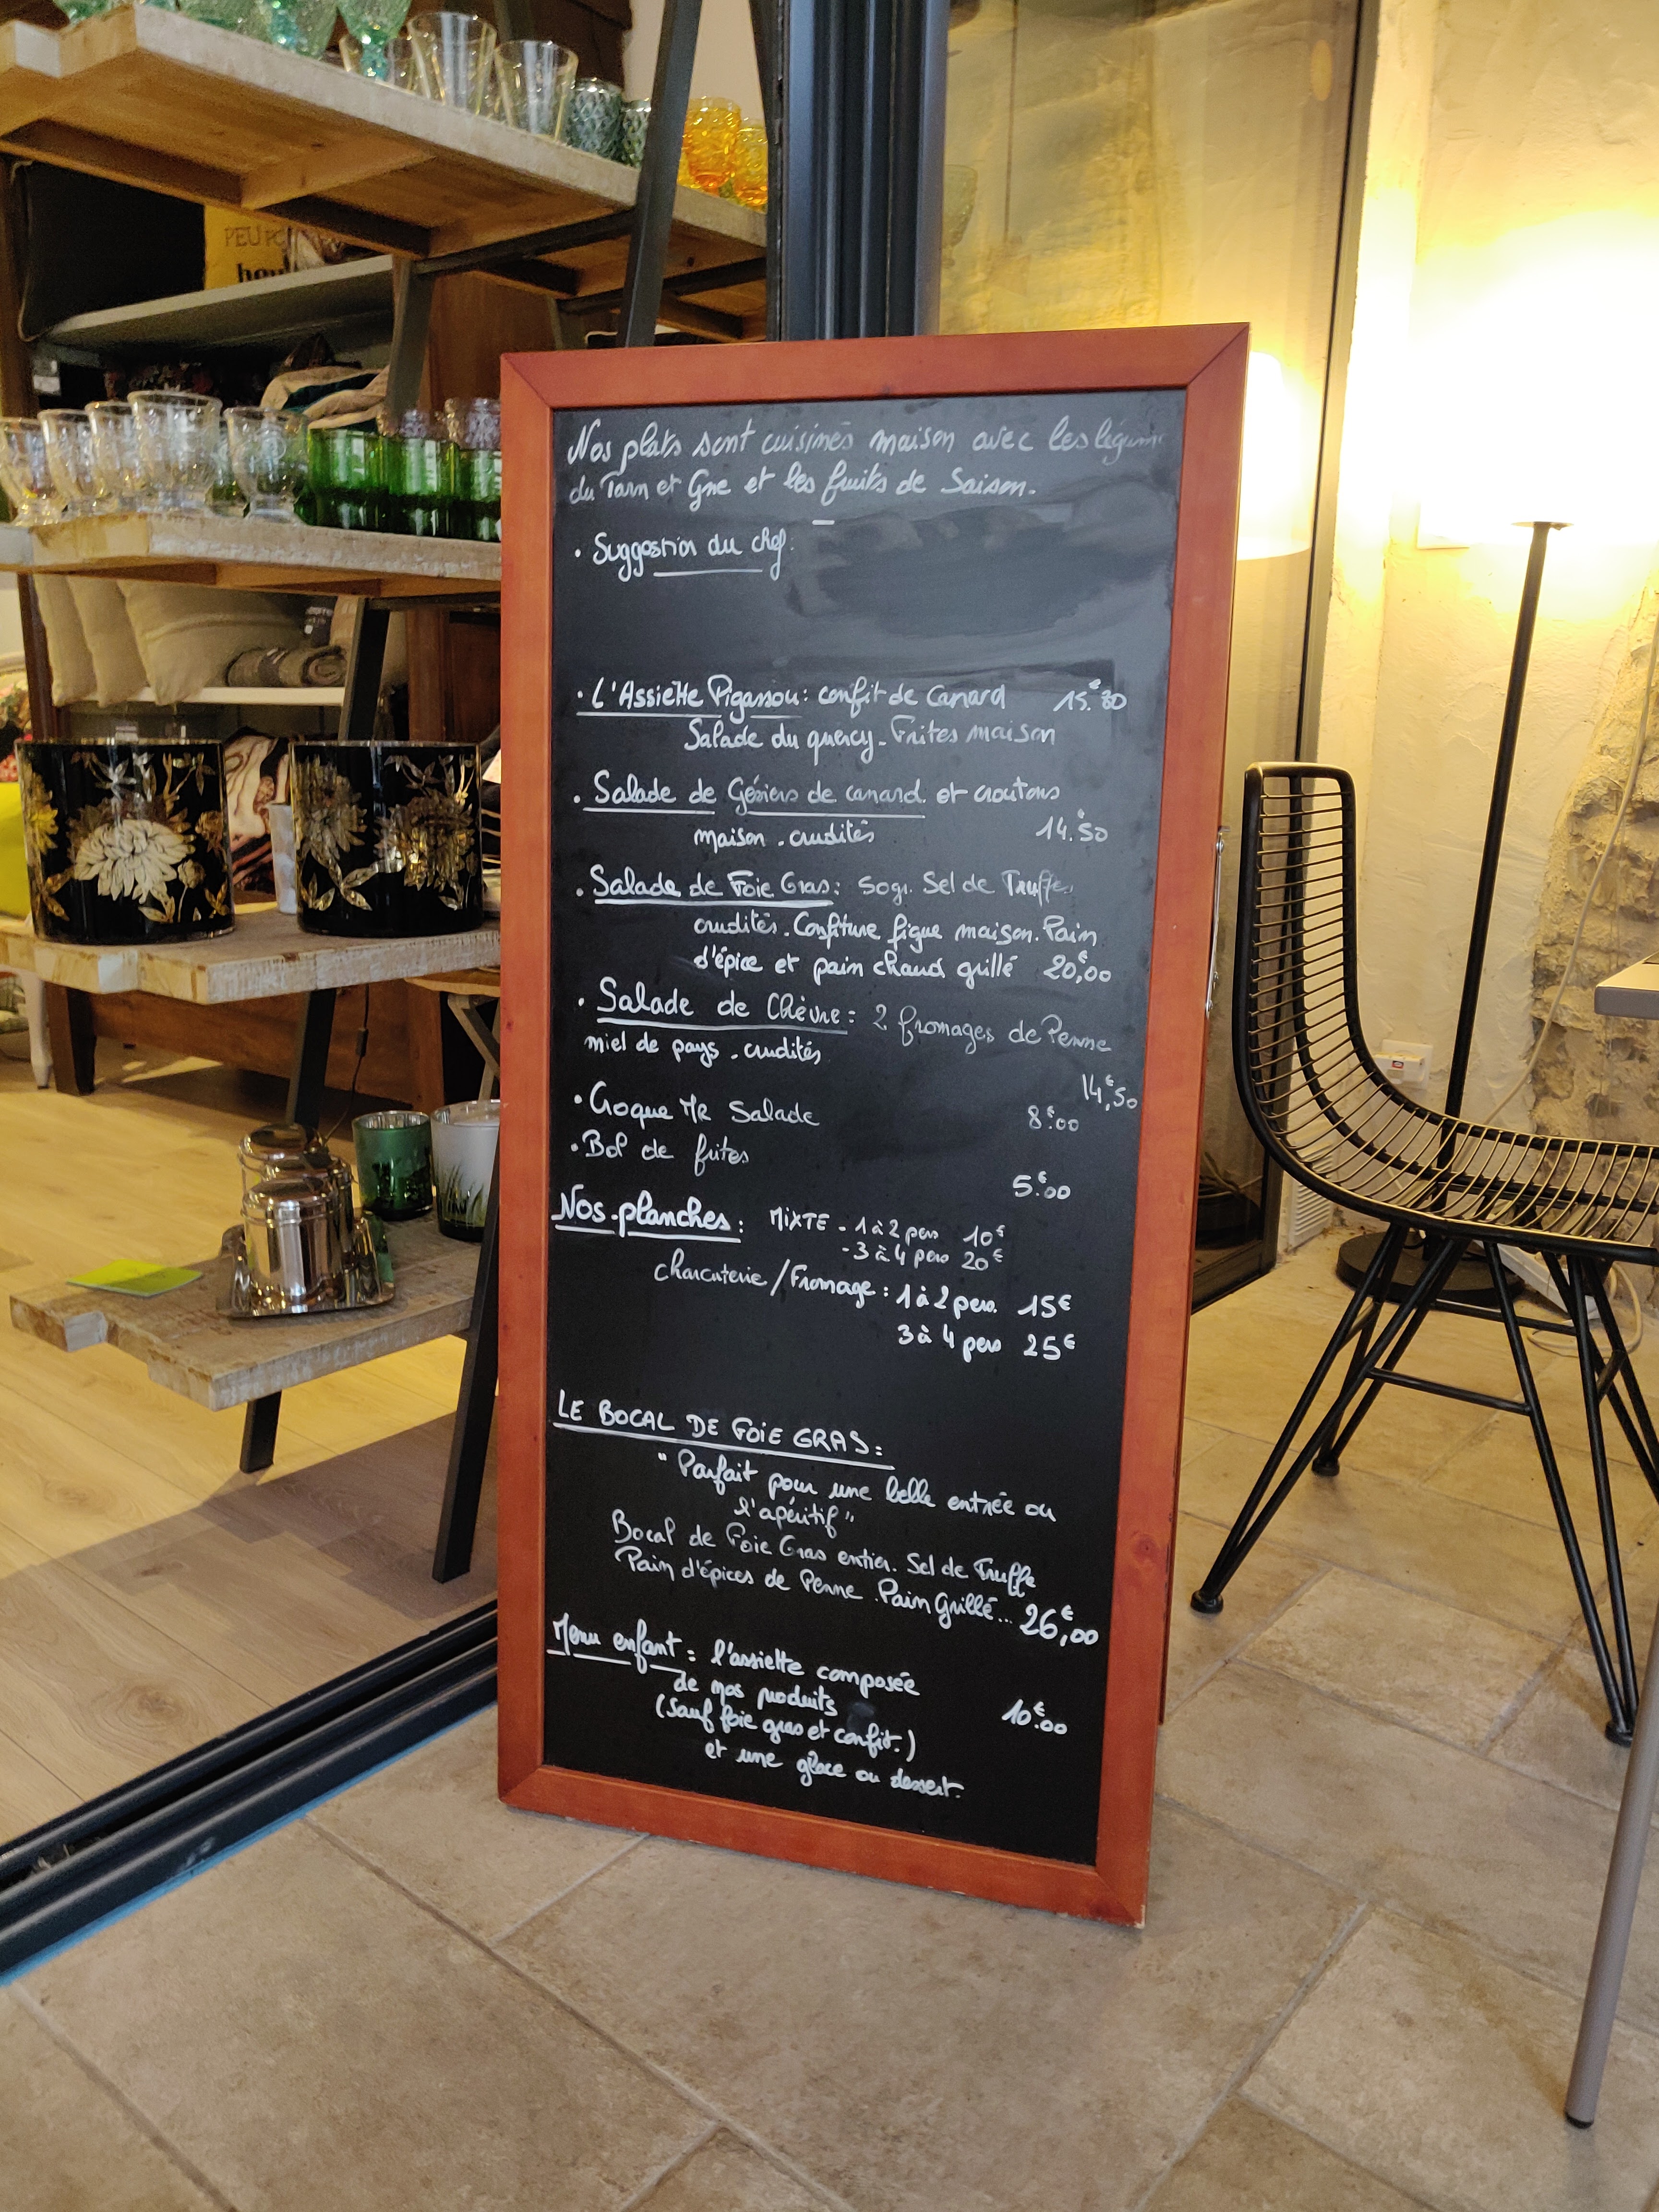 PEU
Nos plats sont cuisinés maison avec les légum
du Tarn et Gne et les fruits de Saison.
. Suggestion du chef.
. L'Assiette Pigassou : confit de Canard 15.€80
Salade du quercy - Frites maison
. Salade de Gésiers de canard. et croutons
maison . crudités 14.€50
. Salade de Foie Gras : 50gr. Sel de Truffe,
crudités . Confiture figue maison. Pain
d'épice et pain chaud grillé 20,€00
. Salade de Chèvre : 2 fromages de Penne
miel de pays . crudités
14,€50
. Croque MR Salade 8.€00
. Bol de frites
5.€00
Nos planches : MIXTE - 1 à 2 pers 10€
- 3 à 4 pers 20€
charcuterie / Fromage : 1 à 2 pers. 15€
3 à 4 pers 25€
LE BOCAL DE FOIE GRAS :
" Parfait pour une belle entrée ou
l'apéritif "
Bocal de Foie Gras entier. Sel de Truffe
Pain d'épices de Penne . Pain Grillé... 26,€00
Menu enfant : l'assiette composée
de nos produits
(Sauf foie gras et confit.) 10.€00
et une glace ou dessert.